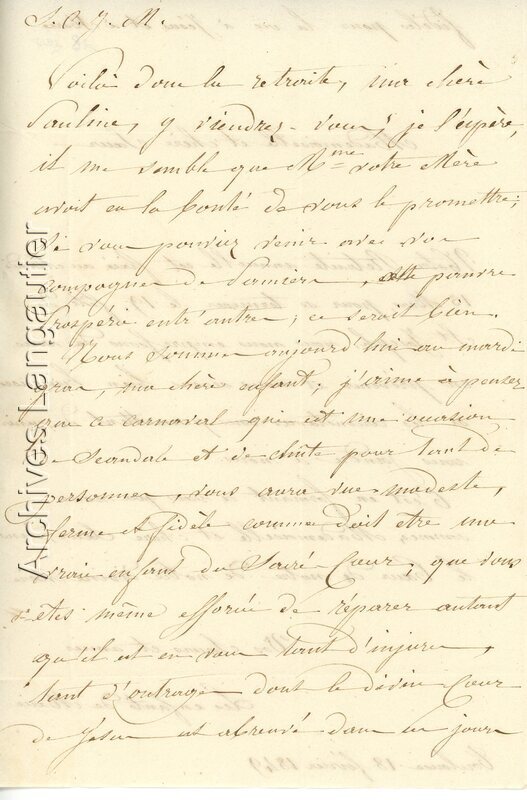 S. C. J. M.
Voilà donc la retraite, ma chère
Pauline, y viendrez-vous? je l'espère,
il me semble que Mme votre Mère
avoit eu la bonté de vous le promettre;
si vous pouviez venir avec vos
compagnes de dernière, pauvre
Prospérie entr'autre; ce seroit bien.
Nous sommes aujourd'hui au mardi
gras, ma chère enfant; j'aime à penser
que ce carnaval qui est une occasion
de scandale et de chûte pour tant de
personnes, vous aura vue modeste,
ferme et fidèle comme doit etre une
vraie enfant du Sacré Cœur, que vous
etes même efforcée de réparer autant
qu'il est en vous tant d'injures,
tant d'outrages dont le divin Cœur
de Jésus est abreuvé dans ces jours
Archives Langautier